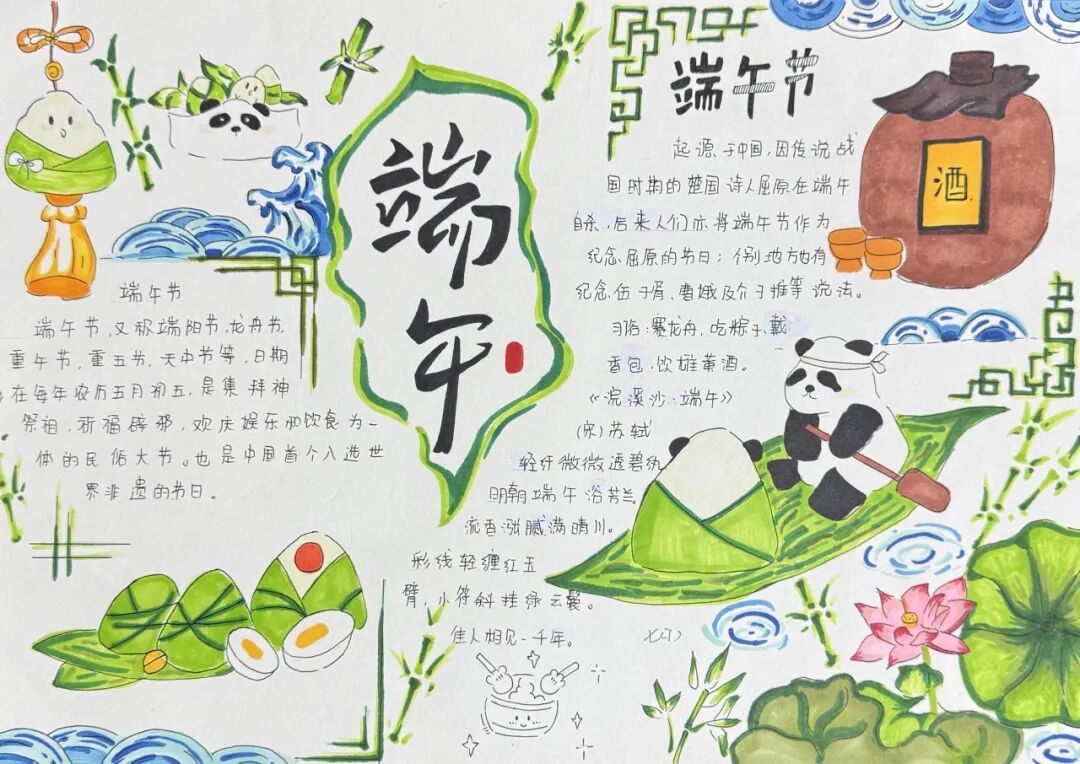 端午
端午节
端午节,又称端阳节,龙舟节,
重午节,重五节,天中节等,日期
在每年农历五月初五,是集拜神
祭祖,祈福辟邪,欢庆娱乐和饮食为一
体的民俗大节。也是中国首个入选世
界非遗的节日。
端午节
起源于中国,因传说战
国时期的楚国诗人屈原在端午
自杀,后来人们亦将端午节作为
纪念屈原的节日;个别地方也有
纪念伍子胥.曹娥及介子推等说法。
习俗:赛龙舟,吃粽子,戴
香包,饮雄黄酒。
《浣溪沙·端午》
(宋)苏轼
轻纤微微透碧纨
明朝端午浴芳兰。
流香涨腻满晴川。
彩线轻缠红五
臂,小符斜挂绿云鬟。
佳人相见一千年。
酒